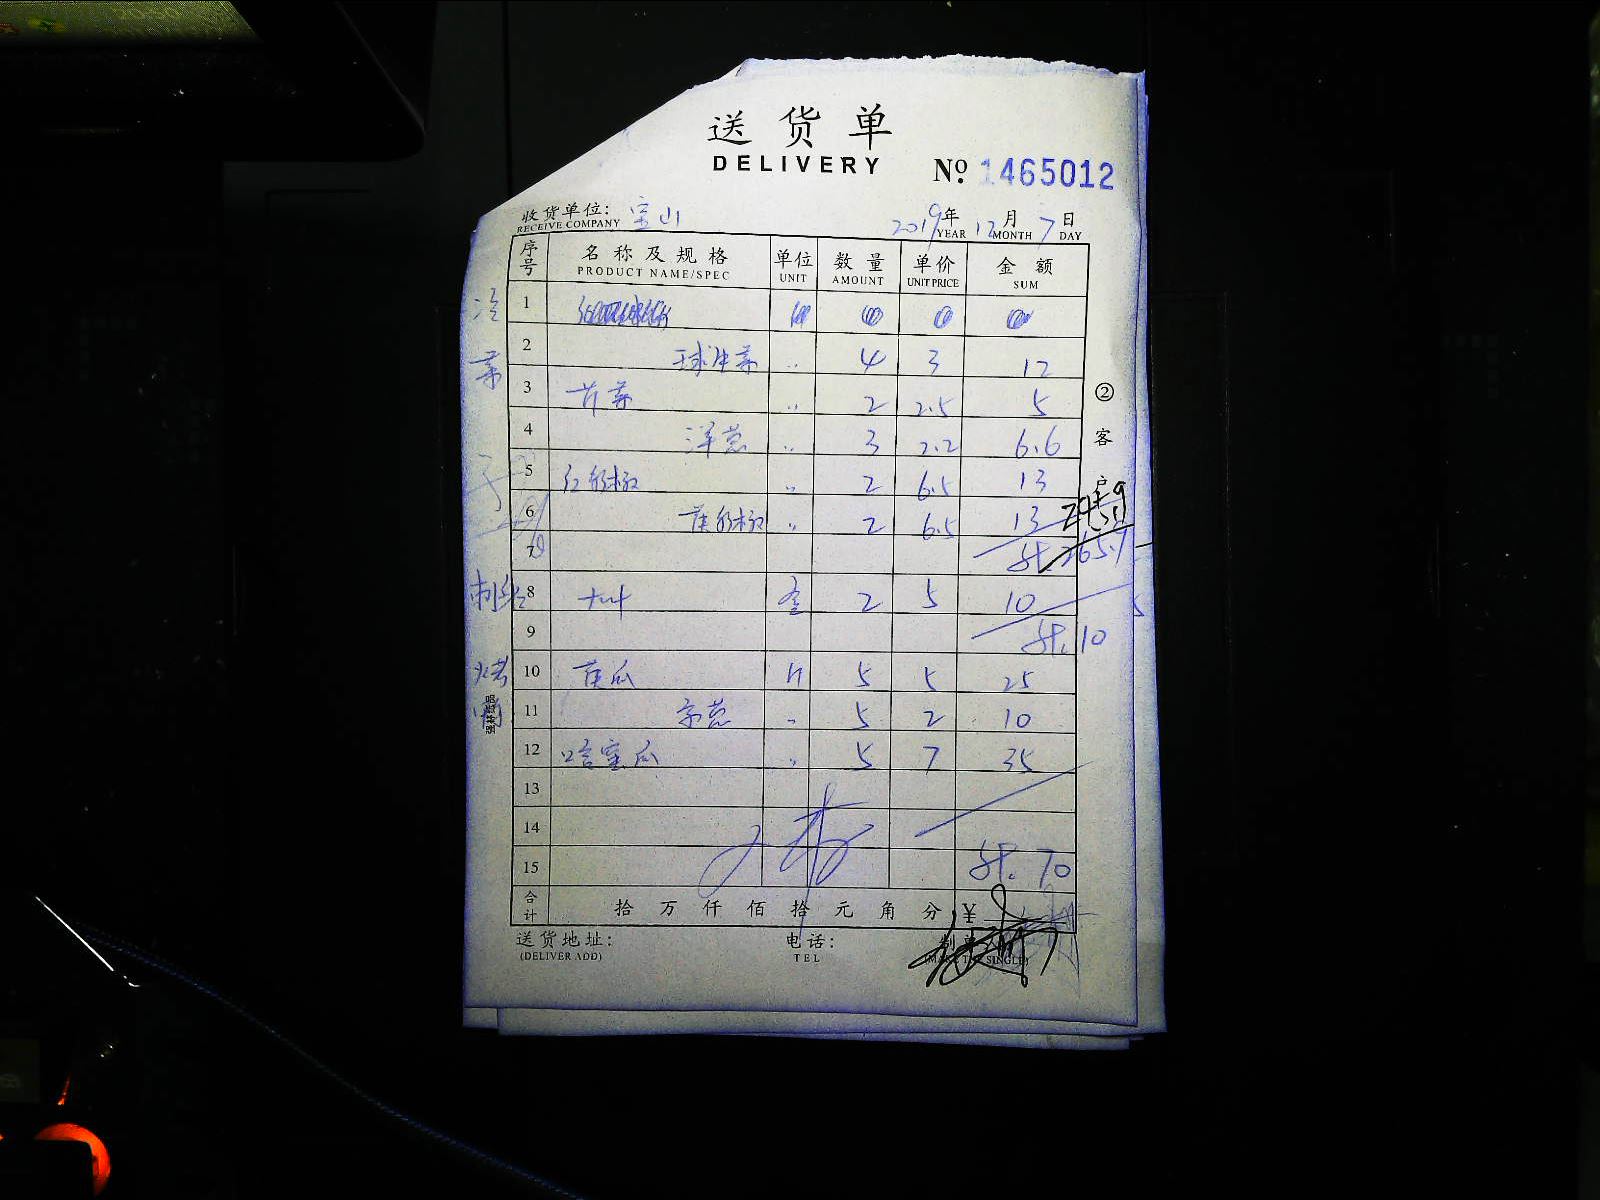 送货单
DELIVERY
№ 1465012
收货单位: 宝山
RECEIVE COMPANY
2019年 12月 7日
YEAR MONTH DAY
序号 名称及规格 单位 数量 单价 金额
PRODUCT NAME/SPEC UNIT AMOUNT UNIT PRICE SUM
1
2 球生菜 〃 4 3 12
3 芹菜 〃 2 2.5 5
4 洋葱 〃 3 2.2 6.6
5 红彩椒 〃 2 6.5 13
6 黄彩椒 〃 2 6.5 13
7 265.7
8 大叶 盒 2 5 10
9 10
10 黄瓜 斤 5 5 25
11 京葱 〃 5 2 10
12 哈蜜瓜 〃 5 7 35
13
14
15 70
合计 拾 万 仟 佰 拾 元 角 分 ¥
送货地址: 电话:
(DELIVER ADD) TEL
②客户
冷菜
刺身
烤